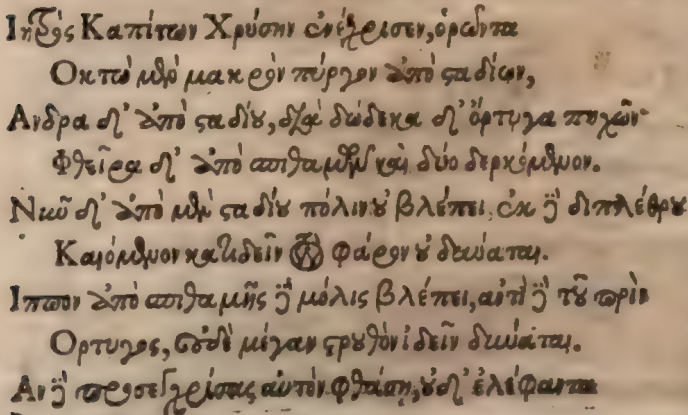 Ιητρὸς Καπίτων Χρύσην ἐνέχρισεν, ὁρῶντα
Οκτὼ μὲν μακρὸν πύργον ἀπὸ σταδίων,
Ανδρα δ' ἀπὸ σταδίου, διὰ δώδεκα δ' ὄρτυγα πηχῶν
Φθεῖρα δ' ἀπὸ σπιθαμῶν καὶ δύο δερκόμενον.
Νῦν δ' ἀπὸ μὲν σταδίου πόλιν οὐ βλέπει, ἐκ δὲ διπλέθρου
Καιόμενον κατιδεῖν τὸν φάρον οὐ δύναται.
Ιππον ἀπὸ σπιθαμῆς δὲ μόλις βλέπει, ἀντὶ δὲ τοῦ πρὶν
Ορτυγος, οὐδὲ μέγαν στρουθὸν ἰδεῖν δύναται.
Αν δὲ προσεγχρίσας αὐτὸν φθάσῃ, οὐδ' ἐλέφαντα